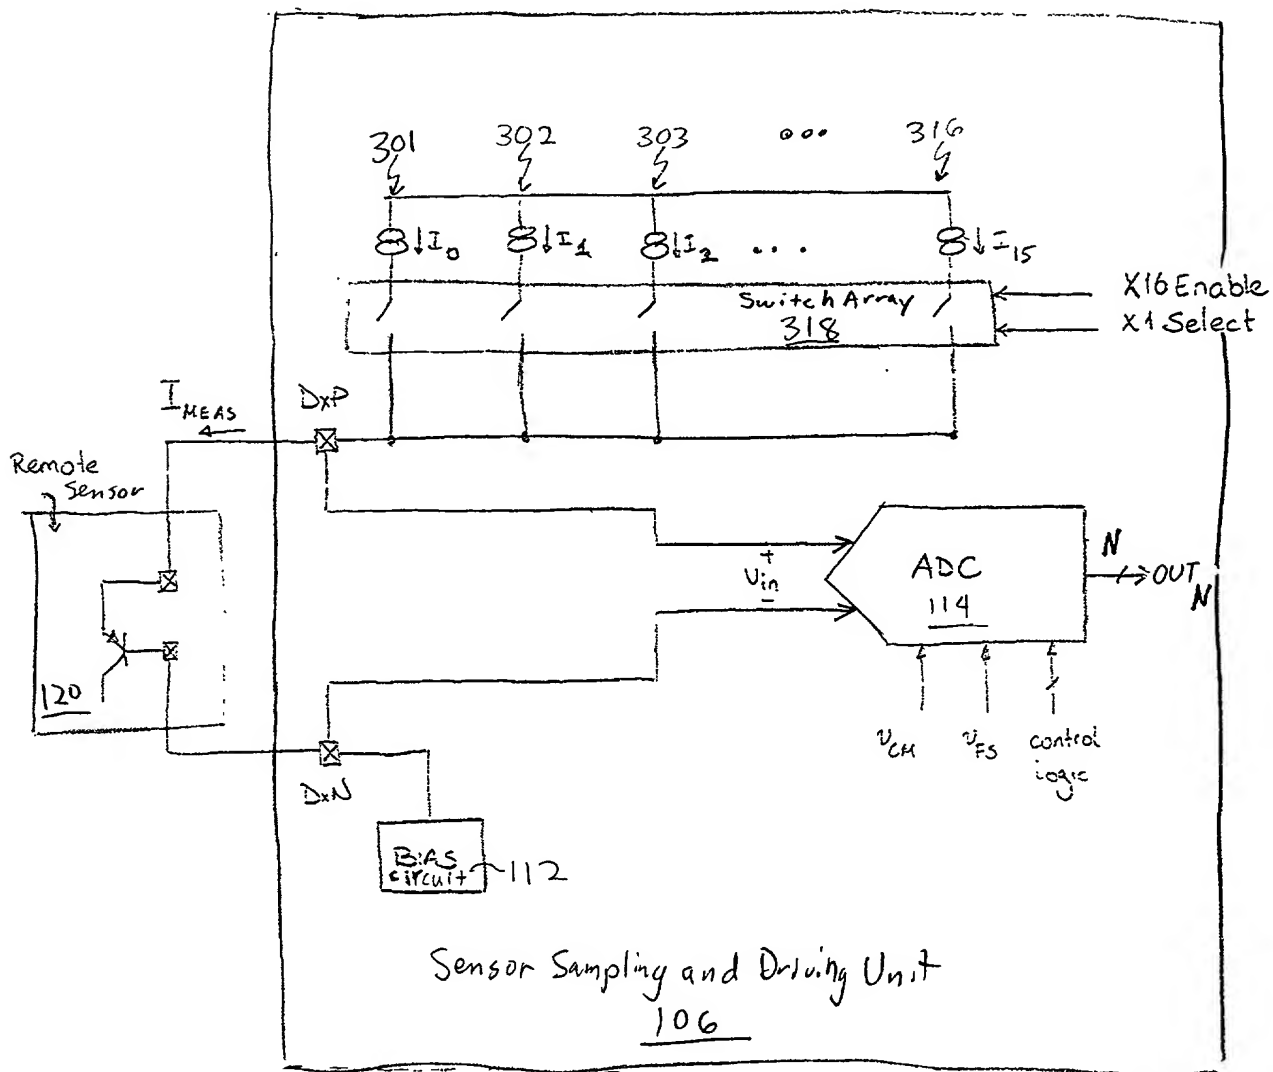 301 302 303 ... 316
I0 I1 I2 ... I15
Switch Array
318
X16 Enable
X1 Select
IMEAS
DxP
Remote
Sensor
120
Vin
+
-
ADC
114
N
OUTN
VCM VFS control
logic
DxN
BIAS
circuit
112
Sensor Sampling and Driving Unit
106